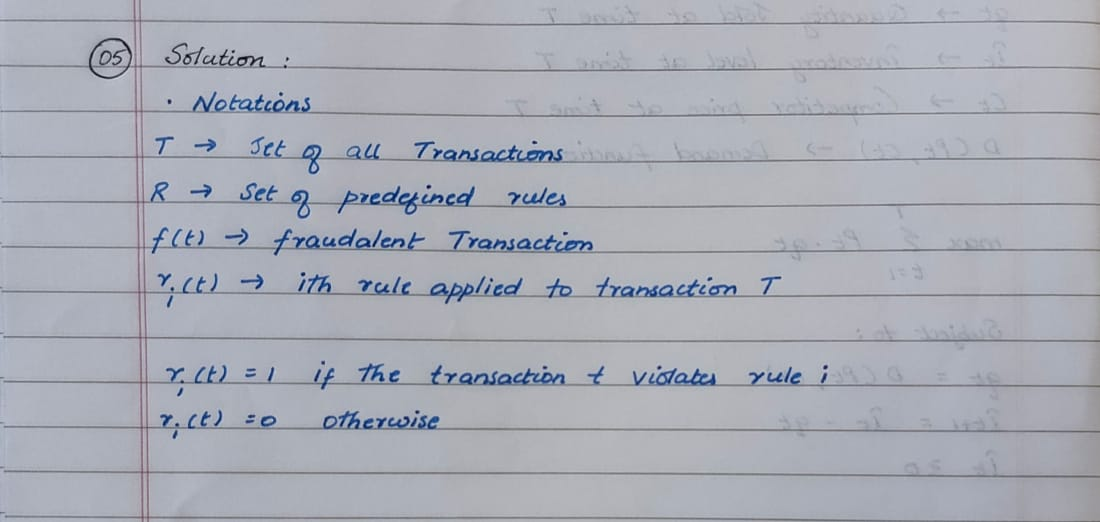 05 Solution :
· Notations
T → Set of all Transactions
R → Set of predefined rules
f(t) → fraudalent Transaction
rᵢ(t) → ith rule applied to transaction T
rᵢ(t) = 1 if the transaction t violates rule i
rᵢ(t) = 0 otherwise